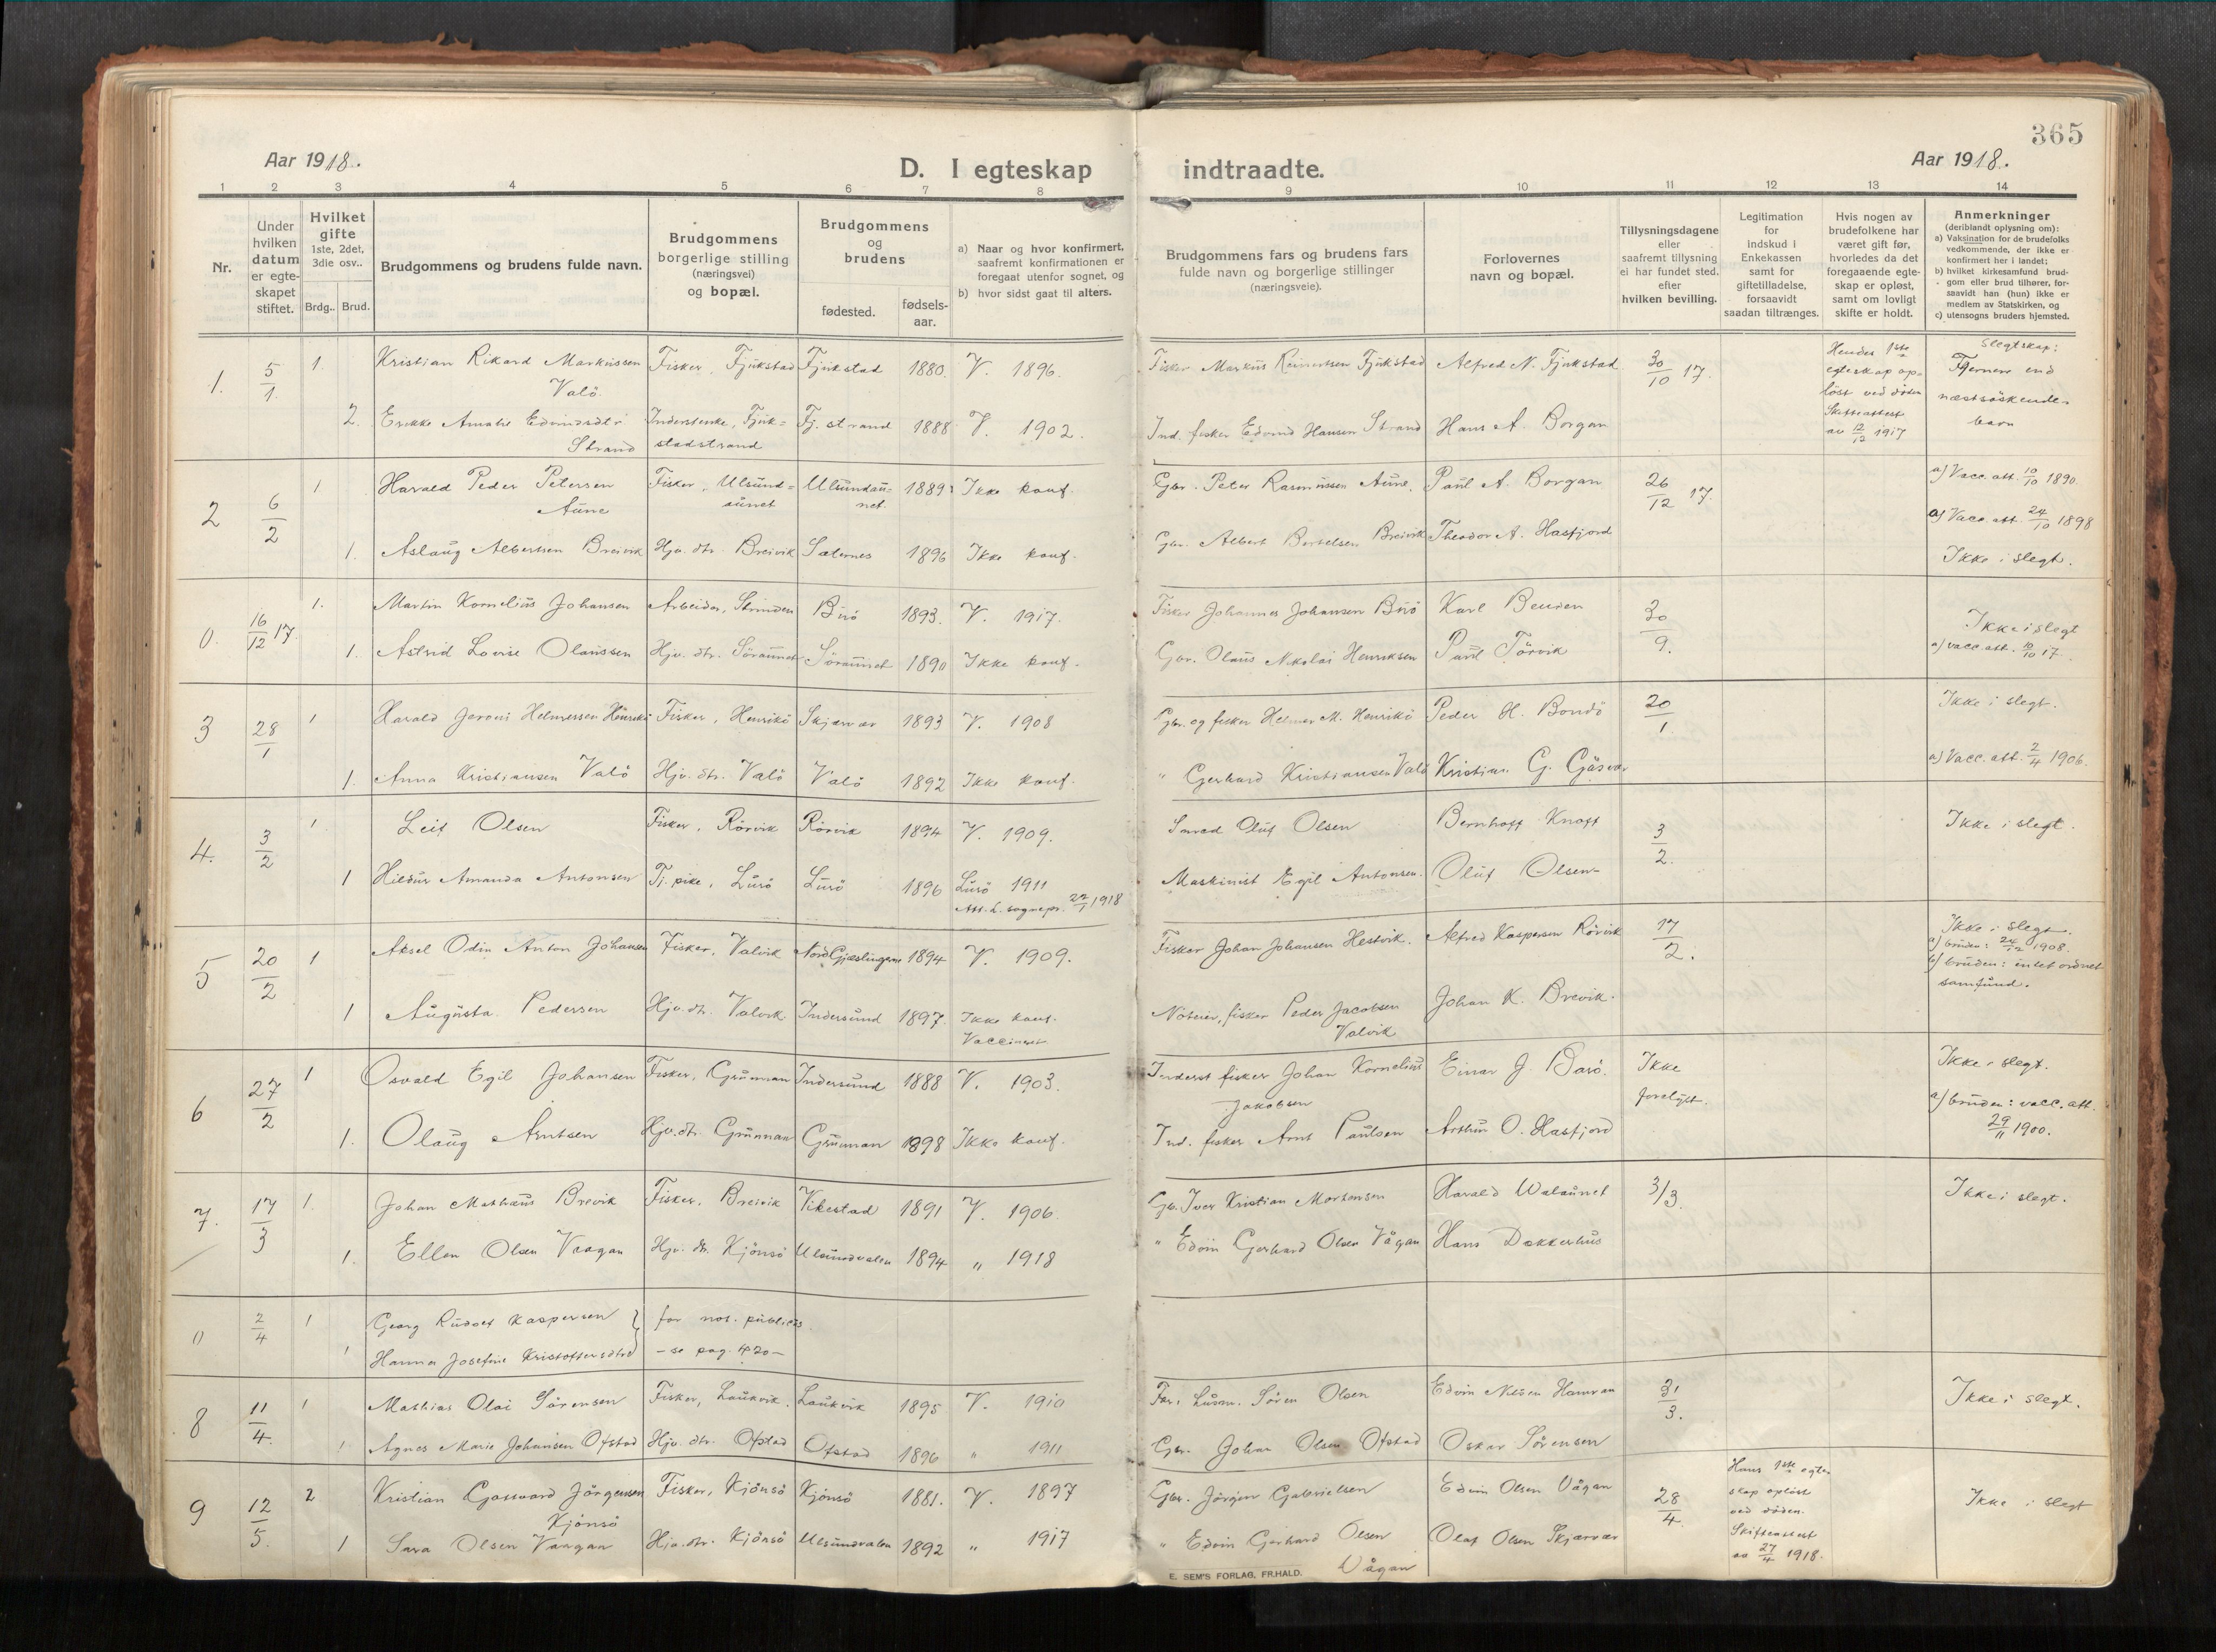 365
Aar 1918.
D. I egteskap indtraadte.
Aar 1918.
1 2 3 4 5 6 7 8 9 10 11 12 13 14
Nr.
Under hvilken datum er egte-skapet stiftet.
Hvilket gifte 1ste, 2det, 3die osv..
Brdg.. Brud.
Brudgommens og brudens fulde navn.
Brudgommens borgerlige stilling (næringsvei) og bopæl.
Brudgommens og brudens
fødested.
fødsels-aar.
a) Naar og hvor konfirmert, saafremt konfirmationen er foregaat utenfor sognet, og
b) hvor sidst gaat til alters.
Brudgommens fars og brudens fars fulde navn og borgerlige stillinger (næringsveie).
Forlovernes navn og bopæl.
Tillysningsdagene eller saafremt tillysning ei har fundet sted. efter hvilken bevilling.
Legitimation for indskud i Enkekassen samt for giftetilladelse, forsaavidt saadan tiltrænges.
Hvis nogen av brudefolkene har været gift før, hvorledes da det foregaaende egte-skap er opløst, samt om lovligt skifte er holdt.
Anmerkninger (deriblandt oplysning om):
a) Vaksination for de brudefolks vedkommende, der ikke er konfirmert her i landet;
b) hvilket kirkesamfund brud-gom eller brud tilhører, for-saavidt han (hun) ikke er medlem av Statskirken, og
c) utensogns bruders hjemsted.
1. 5/1. 1. Kristian Rikard Markussen Valö. Fisker, Fjukstad Fjukstad 1880. V. 1896. Fisker Markus Reinertsen Fjukstad Alfred N. Fjukstad 30/10 17. Hendes 1ste egteskap op-löst ved döden Skifteattest av 12/12 1917 Slegtskap: Fjernere end næstsöskende-barn
2. Erikke Amalie Edvindsdtr Strand Fjuk=stadstrand Fj. strand 1888 V. 1902. Ind. fisker Edvind Hansen Strand Hans A. Borgan
2 6/2 1 Harald Peder Petersen Aune Fisker, Ulsund=aunet Ulsundau=net. 1889 Ikke konf. Gbr. Peter Rasmussen Aune. Paul A. Borgan 26/12 17. a) Vacc. att. 10/10 1890.
1. Aslaug Albertsen Breivik Hjv. dtr. Breivik Sæternes 1896 Ikke konf. Gbr. Albert Bertelsen Breivik Theodor A. Hasfjord a) Vacc. att. 24/10 1898
Ikke i slegt.
0. 16/12 17. 1. Martin Kornelius Johansen Arbeider, Strinden Buö 1893. V. 1917. Fisker Johannes Johansen Buö Karl Benden 30/9. Ikke i slegt
1. Astrid Lovise Olaussen Hjv. dtr. Söraunet Söraunet 1890 Ikke konf. Gbr. Olaus Nikolai Henriksen Paul Törvik a) vacc. att. 10/10 17.
3 28/1 1 Harald Jeroni Helmersen Henrikö Fisker, Henrikö Skjærvær 1893 V. 1908 Gbr. og fisker Helmer M. Henrikö Peder H. Bondö 20/1. Ikke i slegt.
1. Anna Kristiansen Valö Hjv. dtr. Valö Valö 1892 Ikke konf. " Gerhard Kristiansen Valö Kristian G. Gåsvær a) Vacc. att. 2/4 1906.
4. 3/2 1 Leif Olsen Fisker, Rörvik Rörvik 1894 V. 1909. Smed Oluf Olsen Bernhoft Knoff 3/2. Ikke i slegt.
1 Hildur Amanda Antonsen Tj. pike, Lurö Lurö 1896 Lurö 1911 Att. L. sognepr. 22/1 1918 Maskinist Egil Antonsen. Oluf Olsen
5 20/2 1 Aksel Odin Anton Johansen Fisker, Valvik Nord Gjæslingerne 1894 V. 1909. Fisker Johan Johansen Hestvik. Alfred Kaspersen Rörvik 17/2. Ikke i slegt.
a) bruden: 24/2 1908.
b) bruden: intet ordnet samfund.
1 Augusta Pedersen Hjv. dtr. Valvik. Indersund 1897. Ikke konf. Vaccinert Noteier, fisker Peder Jacobsen Valvik Johan K. Brevik.
6 27/2 1 Osvald Egil Johansen Fisker, Grunnan Indersund 1888 V. 1903. Inderst fisker Johan Kornelius Jakobsen Einar J. Barö. Ikke forelyst. Ikke i slegt.
1. Olaug Arntsen Hjv. dtr. Grunnan Grunnan 1898 Ikke konf. Ind. fisker Arnt Paulsen Arthur O. Hasfjord a) bruden: vacc. att. 29/11 1900.
7. 17/3 1. Johan Mathæus Brevik Fisker. Breivik Vikestad 1891 V. 1906. Gb. Iver Kristian Mortensen Harald Walaunet 3/3. Ikke i slegt.
1. Ellen Olsen Vaagan Hjv. dtr. Kjönsö Ulsundvalen 1894 " 1918 " Edvin Gerhard Olsen Vågan Hans Dekkerhus
0 2/4 1 Georg Rudolf Kaspersen } for not. publicus
1 Hanna Josefine Kristoffersdtr - se pag. 420 -
8 11/4. 1 Mathias Olai Sörensen Fisker, Laukvik. Laukvik 1895 V. 1910 Før. Lusm. Sören Olsen Edvin Nilsen Hamran 31/3. Ikke i slegt.
1 Agnes Marie Johansen Ofstad Hjv. dtr. Ofstad Ofstad 1896 " 1911 Gbr. Johan Olsen Ofstad Oskar Sörensen
9 12/5. 2 Kristian Gossvard Jörgensen Kjönsö Fisker, Kjönsö Kjönsö 1881. V. 1897 Gbr. Jörgen Gabrielsen Edvin Olsen Vågan 28/4. Hans 1ste egte-skap oplöst ved döden. Skifteattest av 27/4 1918. Ikke i slegt
1 Sara Olsen Vaagan Hjv. dtr. Kjönsö Ulsundvalen 1892 " 1917 " Edvin Gerhard Olsen Vågan Olaf Olsen Skjærvær
E. SEM'S FORLAG, FR.HALD.